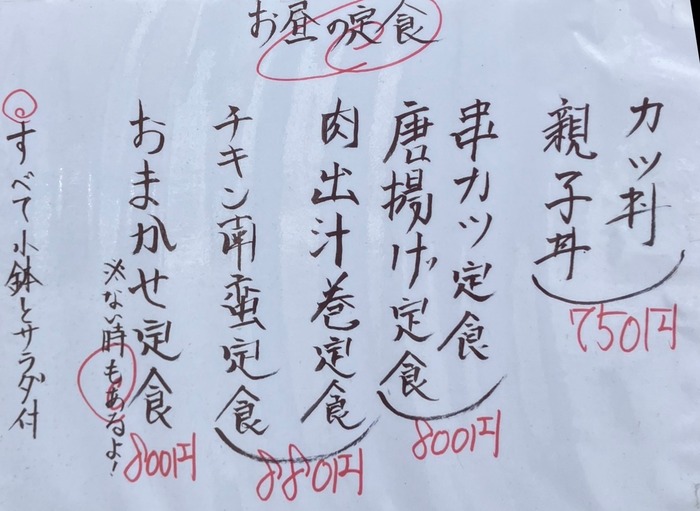 お昼の定食
カツ丼
親子丼
750円
串カツ定食
唐揚げ定食
800円
肉出汁巻定食
チキン南蛮定食
880円
おまかせ定食
800円
※ない時もあるよ!
すべて小鉢とサラダ付